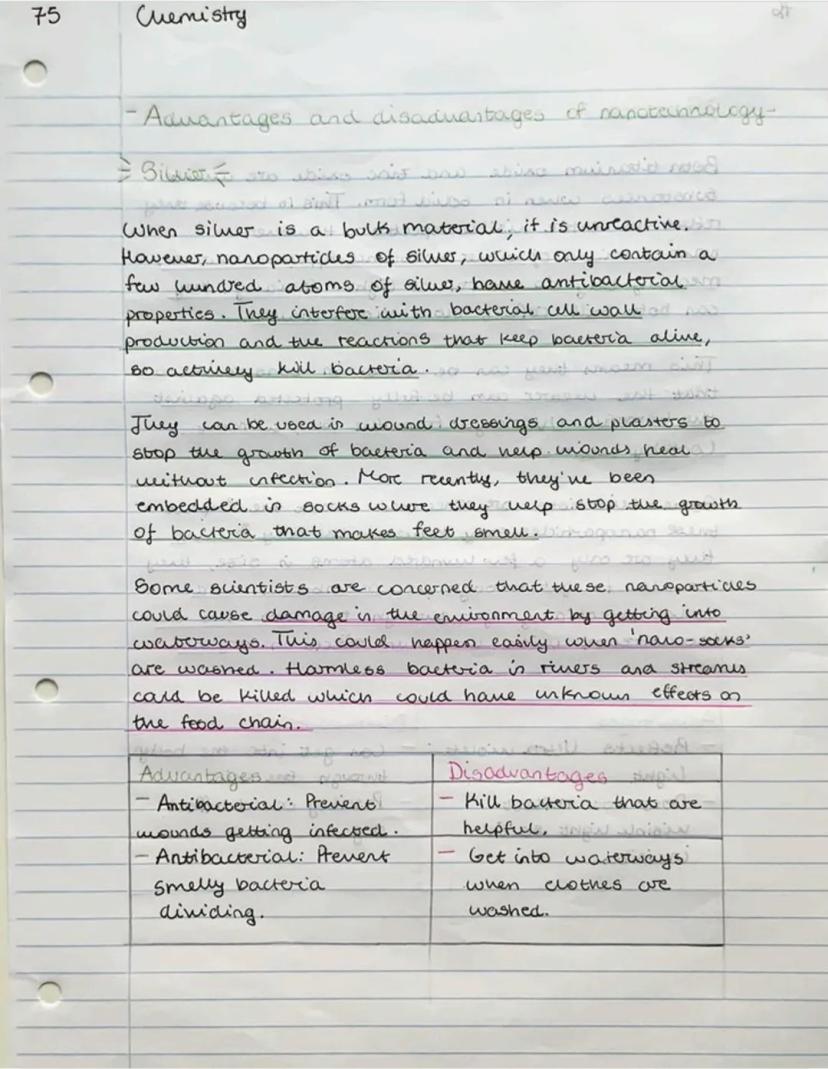 75 Chemistry
- Advantages and disadvantages of nanotechnology -
Silver
When silver is a bulk material, it is unreactive.
However, nanoparticles of silver, which only contain a
few hundred atoms of silver, have antibacterial
properties. They interfere with bacterial cell wall
production and the reactions that keep bacteria alive,
so actively kill bacteria.
They can be used in wound dressings and plasters to
stop the growth of bacteria and help wounds heal
without infection. More recently, they've been
embedded in socks where they help stop the growth
of bacteria that makes feet smell.
Some scientists are concerned that these nanoparticles
could cause damage in the environment by getting into
waterways. This could happen easily when 'nano-socks'
are washed. Harmless bacteria in rivers and streams
could be killed which could have unknown effects on
the food chain.
Advantages
- Antibacterial: Prevent
wounds getting infected.
- Antibacterial: Prevent
smelly bacteria
dividing.
Disadvantages
- Kill bacteria that are
helpful.
- Get into waterways
when clothes are
washed.